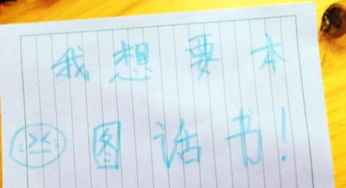 我想要本
图话书!